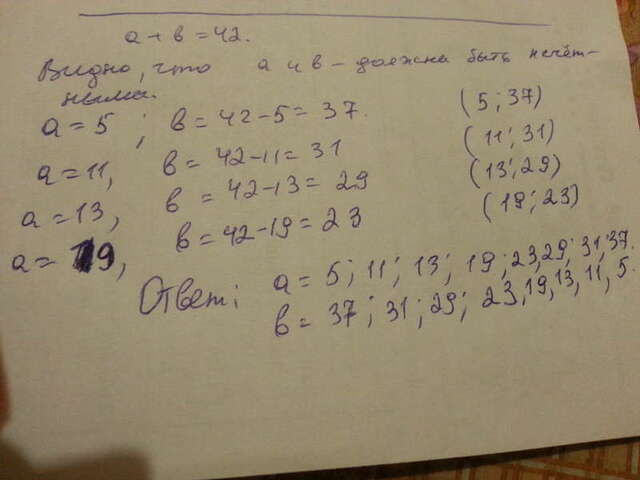 a + в = 42.
Видно, что a и в - должны быть нечёт-
ными.
a = 5 ; в = 42 - 5 = 37. (5; 37)
a = 11, в = 42 - 11 = 31 (11; 31)
a = 13, в = 42 - 13 = 29 (13; 29)
a = 19, в = 42 - 19 = 23 (19; 23)
Ответ: a = 5; 11; 13; 19; 23, 29; 31; 37.
в = 37; 31; 29; 23, 19, 13, 11, 5.